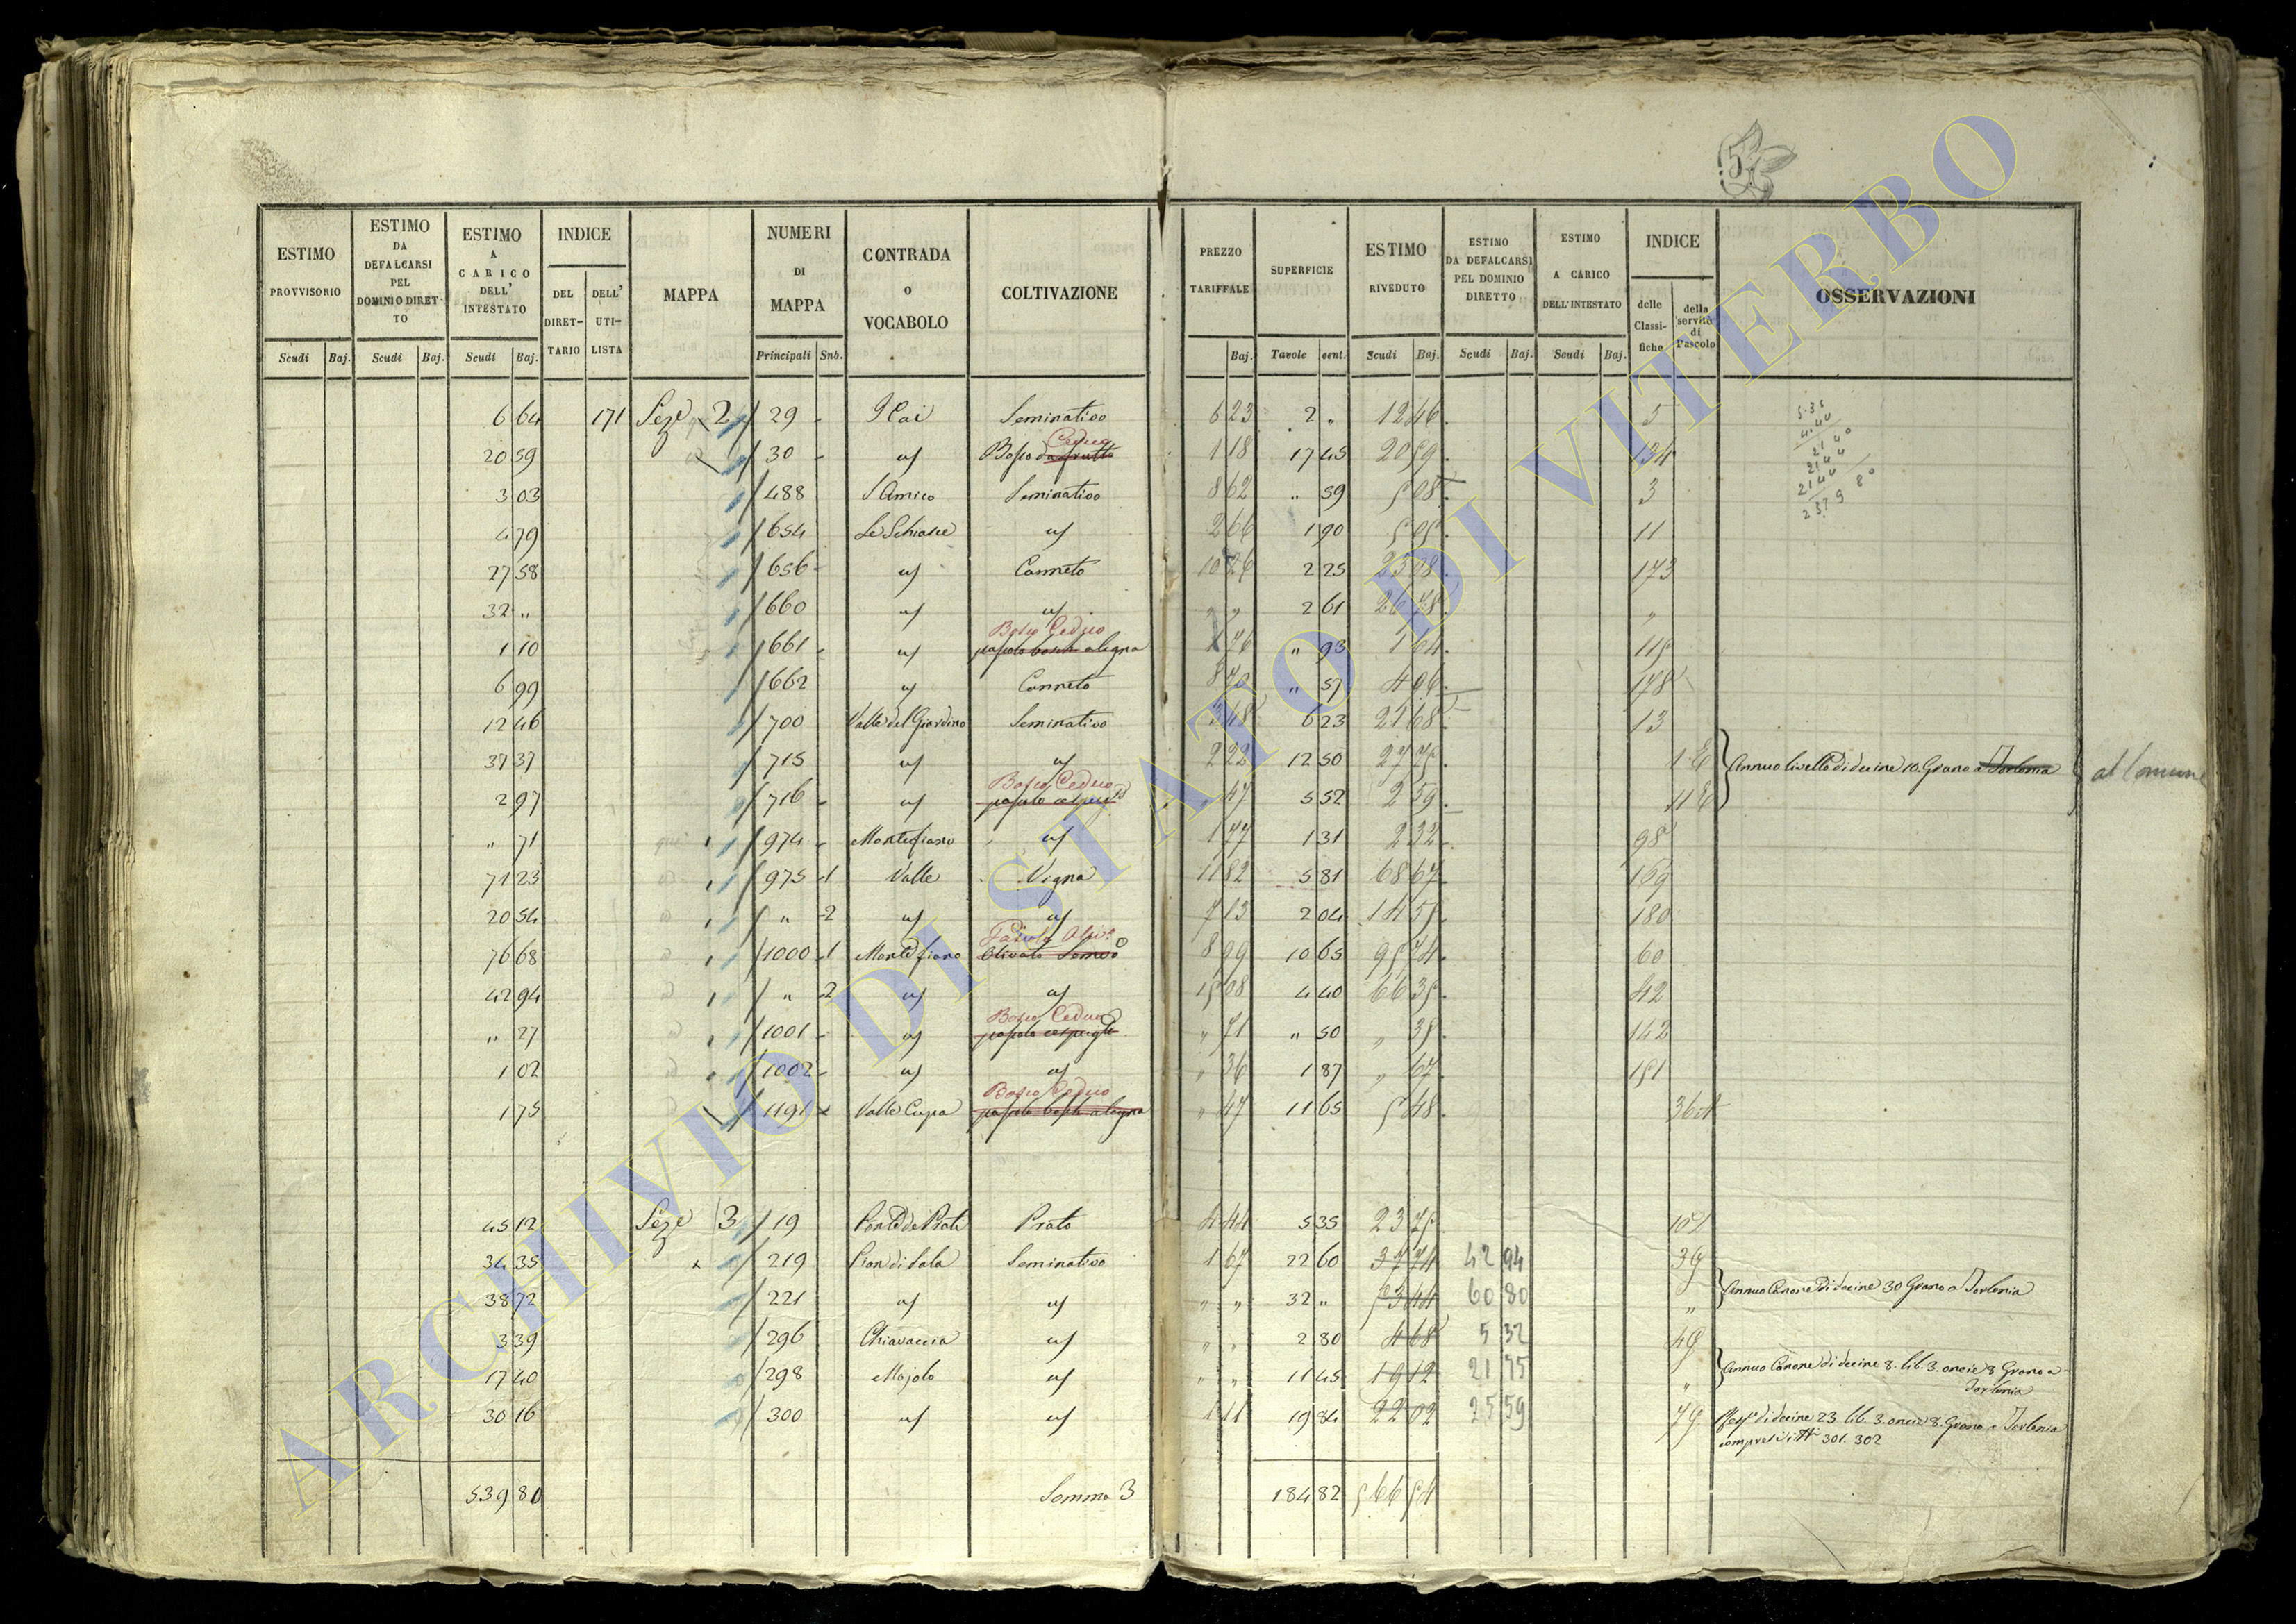 ESTIMO PROVVISORIO Scudi Baj. | ESTIMO DA DEFALCARSI PEL DOMINIO DIRETTO Scudi Baj. | ESTIMO A CARICO DELL' INTESTATO Scudi Baj. | INDICE DEL DIRET-TARIO DELL' UTI-LISTA | MAPPA | NUMERI DI MAPPA Principali Snb. | CONTRADA O VOCABOLO | COLTIVAZIONE | PREZZO TARIFFALE Baj. | SUPERFICIE Tavole cent. | ESTIMO RIVEDUTO Scudi Baj. | ESTIMO DA DEFALCARSI PEL DOMINIO DIRETTO Scudi Baj. | ESTIMO A CARICO DELL'INTESTATO Scudi Baj. | INDICE delle Classifiche della servitù di Pascolo | OSSERVAZIONI
6 64 171 Seze 2 29 Seminativo 6 23 2 " 12 46 5
20 59 30 " Bosco da frutto Ceduo 1 18 17 45 20 59 134
3 03 488 S Amico Seminativo 8 62 " 59 5 08 3
4 79 654 Le Schiasce " 2 66 1 90 5 05 11
27 58 656 " Canneto 10 26 2 25 23 08 173
32 " 660 " " " " 2 61 26 78 "
1 10 661 " pascolo bosch a legna Bosco Ceduo 1 76 " 93 1 64 115
6 99 662 " Canneto " 57 4 06 178
12 46 700 Valle del Giardino Seminativo 3 48 6 23 21 68 13
37 37 715 " " 2 22 12 50 27 75 Annuo livello di decine 10. Grano a Torlonia al Comune
2 97 716 " pascolo cespugto Bosco Ceduo " 47 5 52 2 59
" 71 974 Montefiano " 1 77 1 31 2 32 98
71 23 975 1 Valle Vigna 11 82 5 81 68 67 169
20 54 " 2 " " 7 13 2 04 14 55 180
76 68 1000 1 Monte fiano Olivato 8 99 10 65 95 74 60
42 94 " 2 " " 15 08 4 40 66 35 42
" 27 1001 " pascolo cespugto Bosco Ceduo " 71 " 50 " 38 142
1 02 1002 " " " 36 1 87 " 67 151
1 75 1191 Valle Cupa pascolo bosch a legna Bosco Ceduo " 47 11 65 5 48
45 12 Seze 3 19 Ponte de Prati Prato 4 44 5 35 23 75
34 35 219 Pian di Sala Seminativo 1 67 22 60 37 74 42 94 39
38 72 221 " " " " 32 " 53 44 60 80 " Annuo Canone di decine 30 Grano a Torlonia
3 39 296 Chiavaccia " " " 2 80 4 68 5 32 49
17 40 298 Mojolo " " " 11 45 19 12 21 75 " Annuo Canone di decine 8. lib. 3. oncie 8 Grano a Torlonia
30 16 300 " " 1 11 19 84 22 02 25 59 79 di decine 23 lib. 3. oncie 8. Grano a Torlonia
compresi i 301. 302
539 80 Somma 3 184 82 566 54